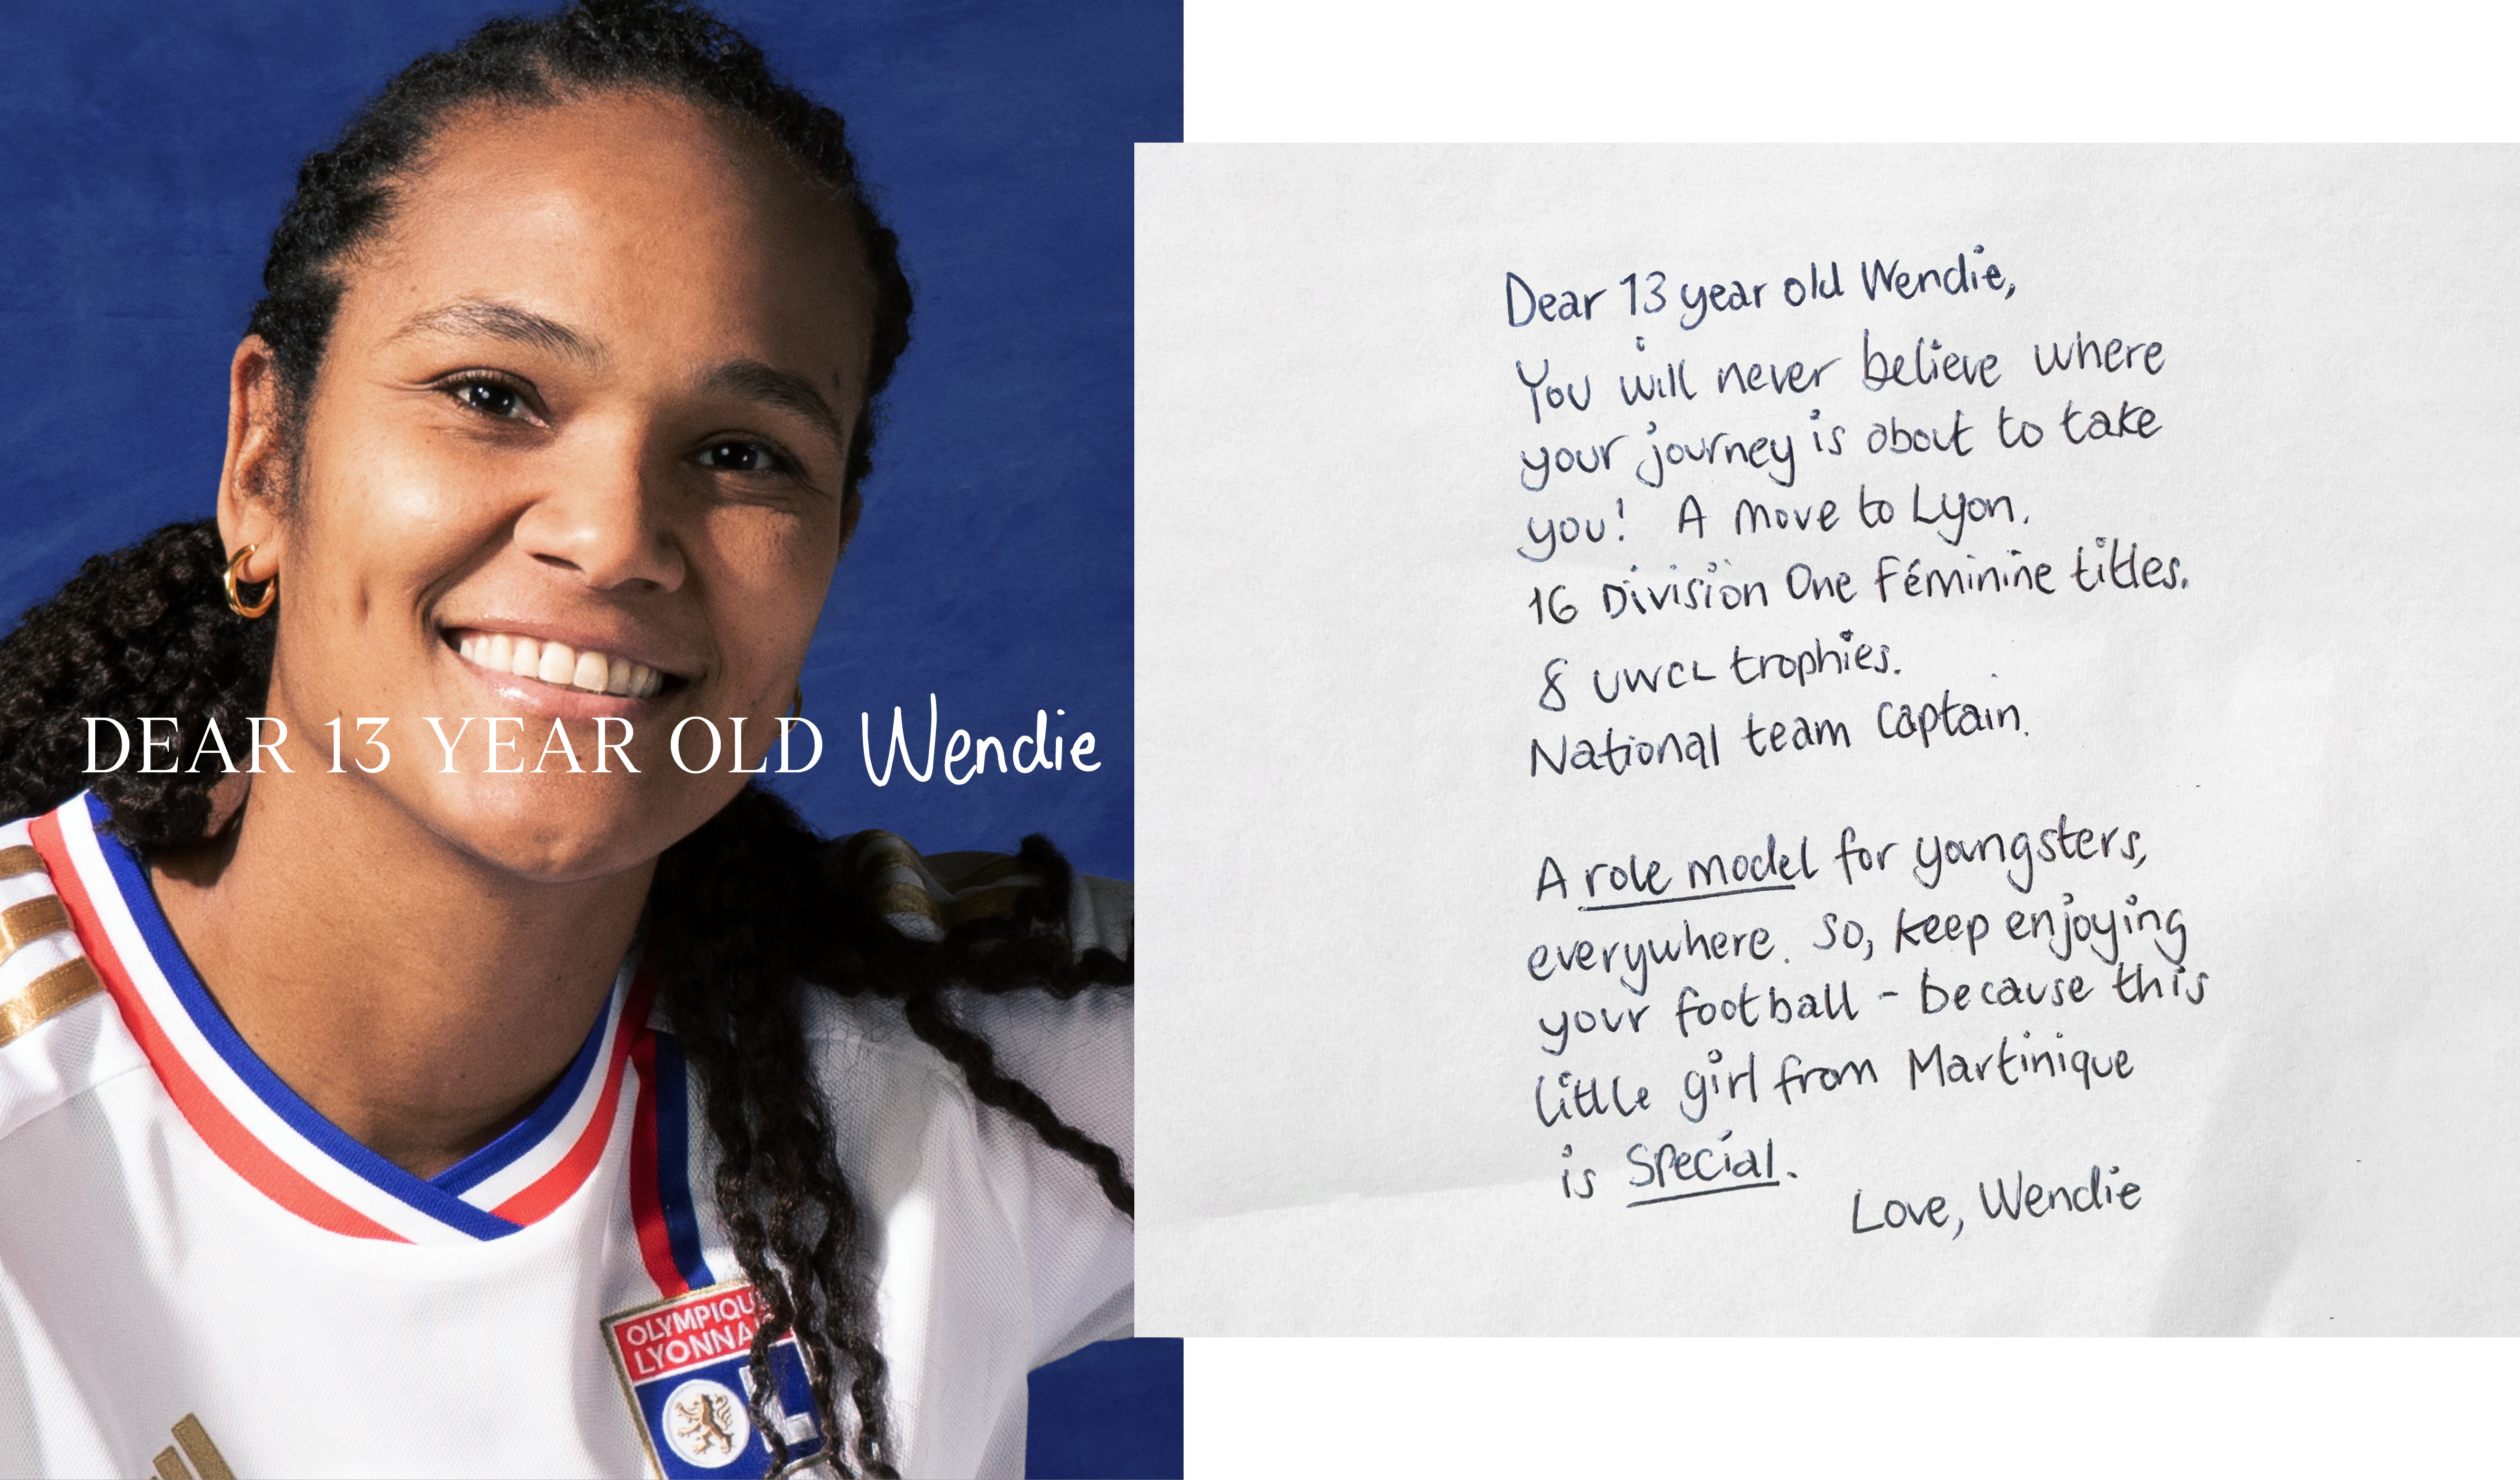 DEAR 13 YEAR OLD Wendie
OLYMPIQU
LYONNA
L
Dear 13 year old Wendie,
You will never believe where
your journey is about to take
you! A move to Lyon.
16 Division One Féminine titles.
8 UWCL trophies.
National team captain.
A role model for youngsters,
everywhere. So, keep enjoying
your football - because this
little girl from Martinique
is Special.
Love, Wendie